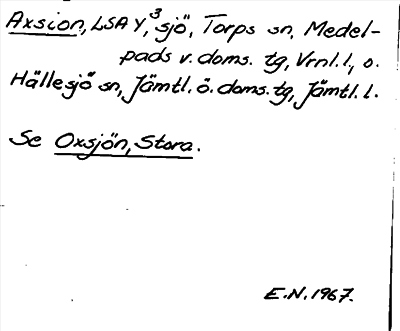 Axsion, LSA Y, ³sjö, Torps sn, Medel-
pads v. doms. tg, Vrnl. l, o.
Hällesjö sn, Jämtl. ö. doms. tg, Jämtl. l.
Se Oxsjön, Stora.
E.N. 1967.